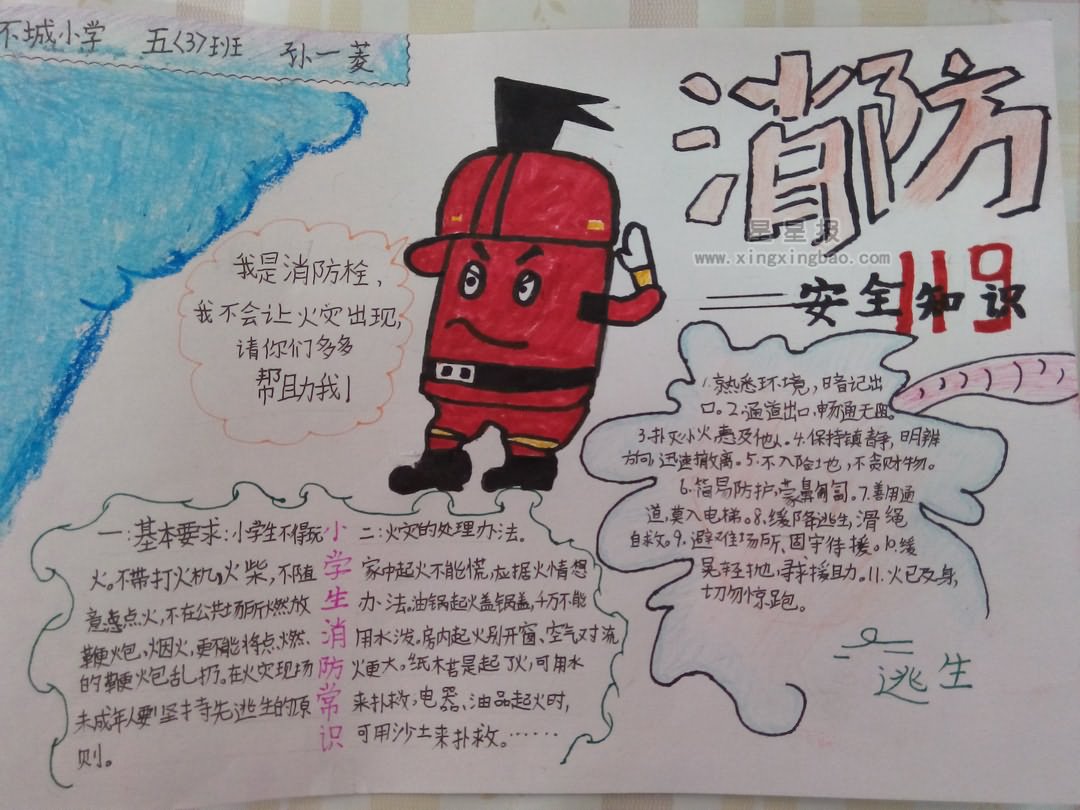 不城小学 五(3)班 孙一菱
消防
119
安全知识
星星报
www.xingxingbao.com
我是消防栓，
我不会让火灾出现，
请你们多多
帮助我！
1.熟悉环境，暗记出
口。2.通道出口，畅通无阻。
3.扑灭小火，惠及他人。4.保持镇静，明辨
方向，迅速撤离。5.不入险地，不贪财物。
6.简易防护，蒙鼻匍匐。7.善用通
道，莫入电梯。8.缓降逃生，滑绳
自救。9.避难场所，固守待援。10.缓
晃轻抛，寻求援助。11.火已及身，
切勿惊跑。
逃生
小学生消防常识
一：基本要求：小学生不得玩
火。不带打火机，火柴，不随
意点火，不在公共场所燃放
鞭炮，烟火，更不能将点燃
的鞭炮乱扔。在火灾现场
未成年人要坚持先逃生的原
则。
二：火灾的处理办法。
家中起火不能慌，应据火情想
办法。油锅起火盖锅盖，千万不能
用水泼。房内起火别开窗、空气对流
火更大。纸木若是起了火，可用水
来扑救，电器、油品起火时，
可用沙土来扑救。……